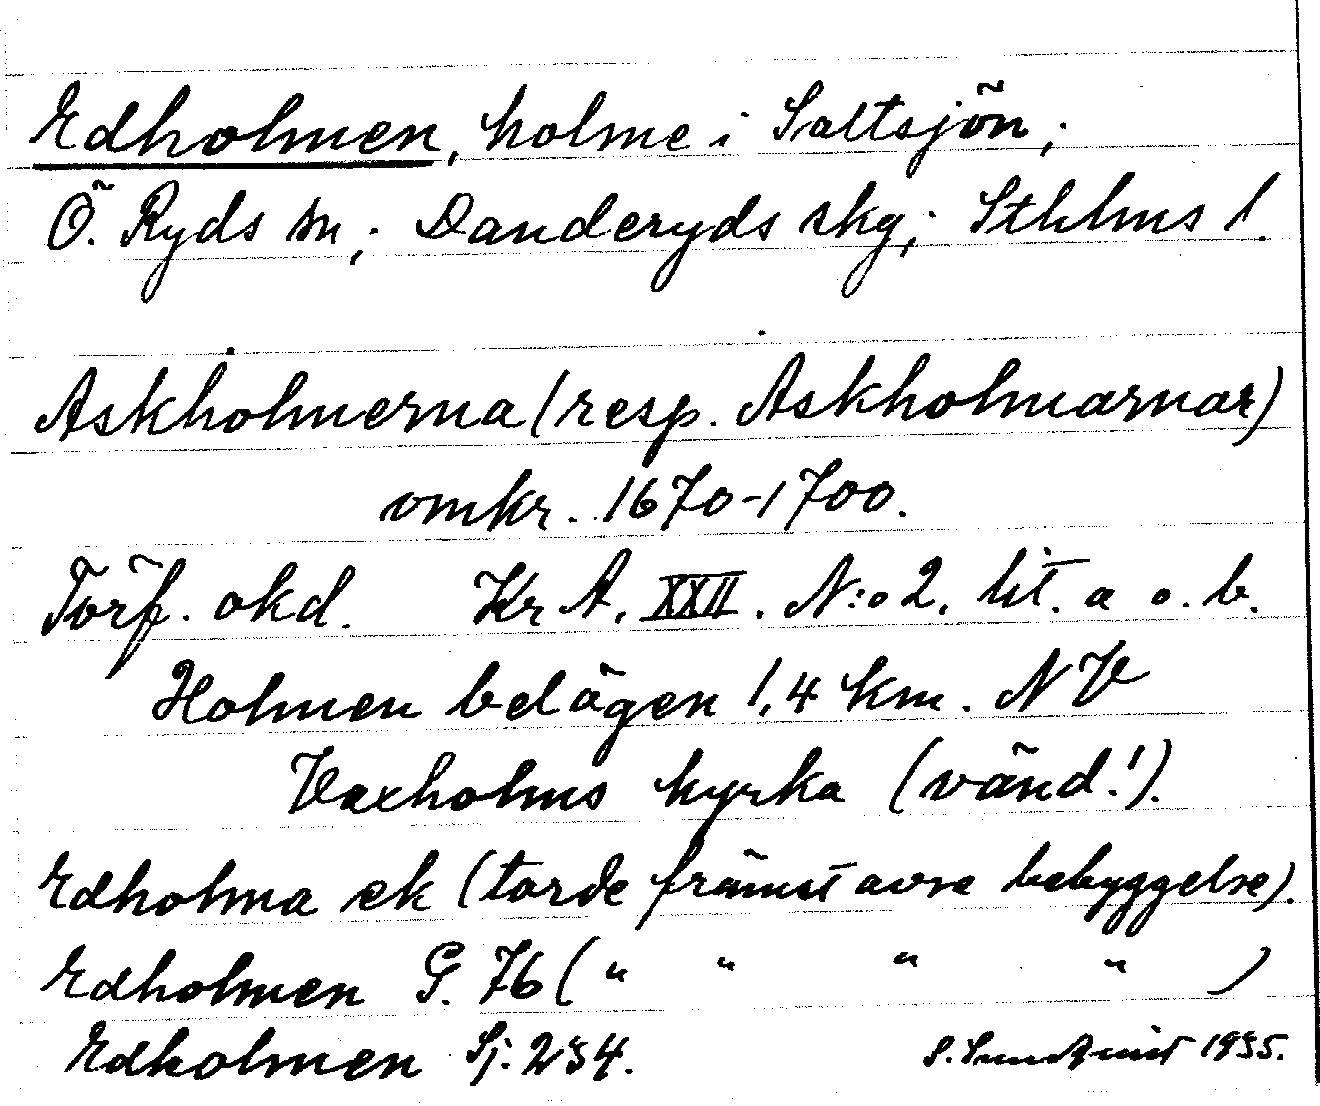 Edholmen, holme i Saltsjön;
Ö. Ryds sn; Danderyds skg; Sthlms l.
Askholmerna (resp. Askholmarnar)
omkr. 1670-1700.
Förf. okd. Kr A. XXII. N:o 2. lit. a o. b.
Holmen belägen 1,4 km. NV
Vaxholms kyrka (vänd!).
Edholma ek (torde främst avse bebyggelse).
Edholmen G. 76 ( " " " " )
Edholmen Sj. 234. S. Sundquist 1935.